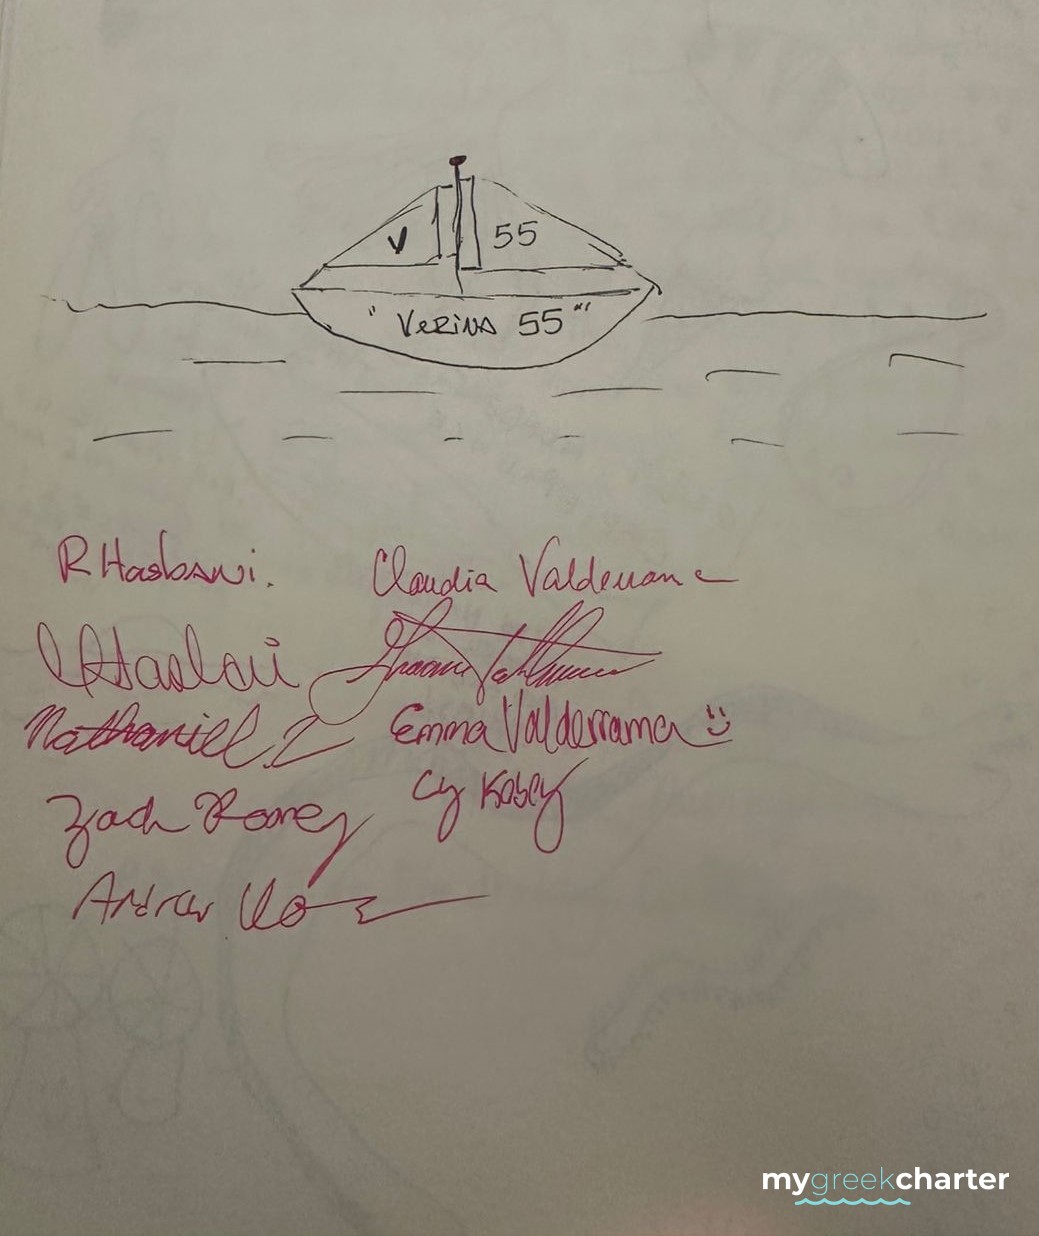 V 55
" VERINA 55 "
R Hasbani.
Claudia Valderrama
Hasbani
Nathaniel
Emma Valderrama
Zach Rooney
Cy Kobey
Andrew
mygreekcharter